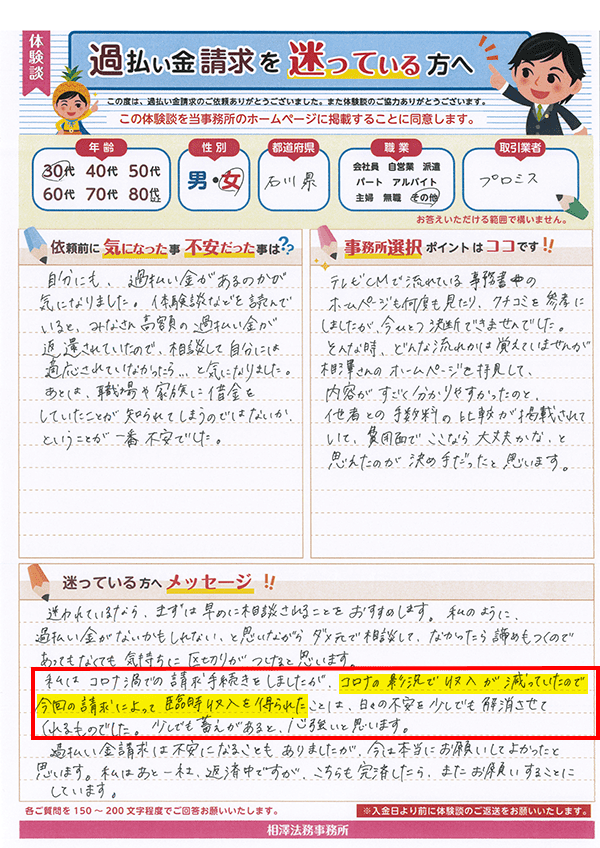 体験談
過払い金請求を迷っている方へ
この度は、過払い金請求のご依頼ありがとうございました。また体験談のご協力ありがとうございます。
この体験談を当事務所のホームページに掲載することに同意します。
年齢
30代 40代 50代
60代 70代 80代以上
性別
男・女
都道府県
石川県
職業
会社員 自営業 派遣
パート アルバイト
主婦 無職 その他
取引業者
プロミス
お答えいただける範囲で構いません。
依頼前に気になった事 不安だった事は??
自分にも、過払い金があるのかが
気になりました。体験談などを読んで
いると、みなさん高額の過払い金が
返還されていたので、相談して自分には
適応されていなかったら…と気になりました。
あとは、職場や家族に借金を
していたことが知られてしまうのではないか、
ということが一番不安でした。
事務所選択ポイントはココです!!
テレビCMで流れている事務書や
ホームページも何度も見たり、クチコミを参考に
しましたが、今ひとつ決断できませんでした。
そんな時、どんな流れかは覚えていませんが
相澤さんのホームページを拝見して、
内容がすごく分かりやすかったのと、
他者との手数料の比較が掲載されて
いて、費用面でここなら大丈夫かな、と
思えたのが決め手だったと思います。
迷っている方へメッセージ!!
迷われているなら、まずは早めに相談されることをおすすめします。私のように、
過払い金がないかもしれない、と思いながらダメ元で相談して、なかったら諦めもつくので
あってもなくても気持ちに区切りがつけると思います。
私はコロナ渦での請求手続きをしましたが、コロナの影響で収入が減っていたので
今回の請求によって臨時収入を得られたことは、日々の不安を少しでも解消させて
くれるものでした。少しでも蓄えがあると、心強いと思います。
過払い金請求は不安になることもありましたが、今は本当にお願いしてよかったと
思います。私はあと一社、返済中ですが、こちらも完済したら、またお願いすることに
しています。
各ご質問を150〜200文字程度でご回答お願いいたします。
※入金日より前に体験談のご返送をお願いいたします。
相澤法務事務所